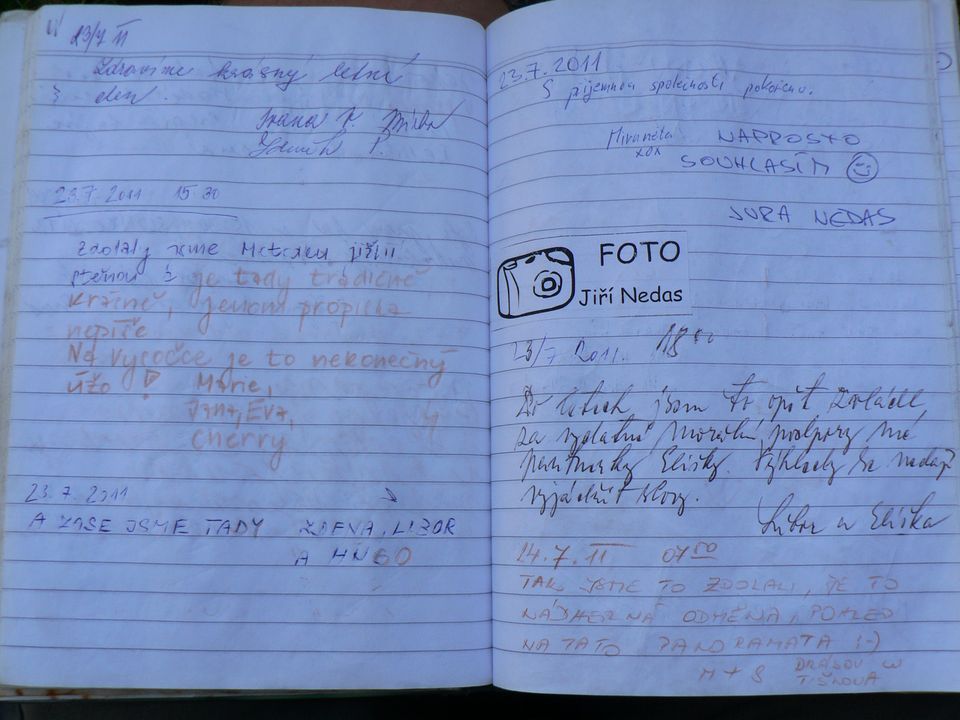 23/7 11
Zdravíme krásný letní
den.
Ivana P.
Zdeněk P.
23.7.2011 15 30
zdolaly jsme
je tady tradičně
krásně, jenom propiska
nepíše
Na Vysočce je to nekonečný
úžo ! Marie,
Jana, Eva,
Cherry
23.7.2011
A ZASE JSME TADY ZDENA, LIBOR
A HUGO
23.7.2011
S příjemnou společností pokořeno.
xox
NAPROSTO
SOUHLASÍM
JURA NEDAS
FOTO
Jiří Nedas
23/7 2011. 18 00
Po letech jsem to opět zvládl,
za vydatné morální podpory mé
partnerky Elišky. Výhledy se nedají
vyjádřit slovy.
Libor a Eliška
24.7.11 07 50
TAK JSME TO ZDOLALI, JE TO
NÁDHERNÁ ODMĚNA, POHLED
NA TATO PANORAMATA :-)
M + S DRÁSOV U
TIŠNOVA